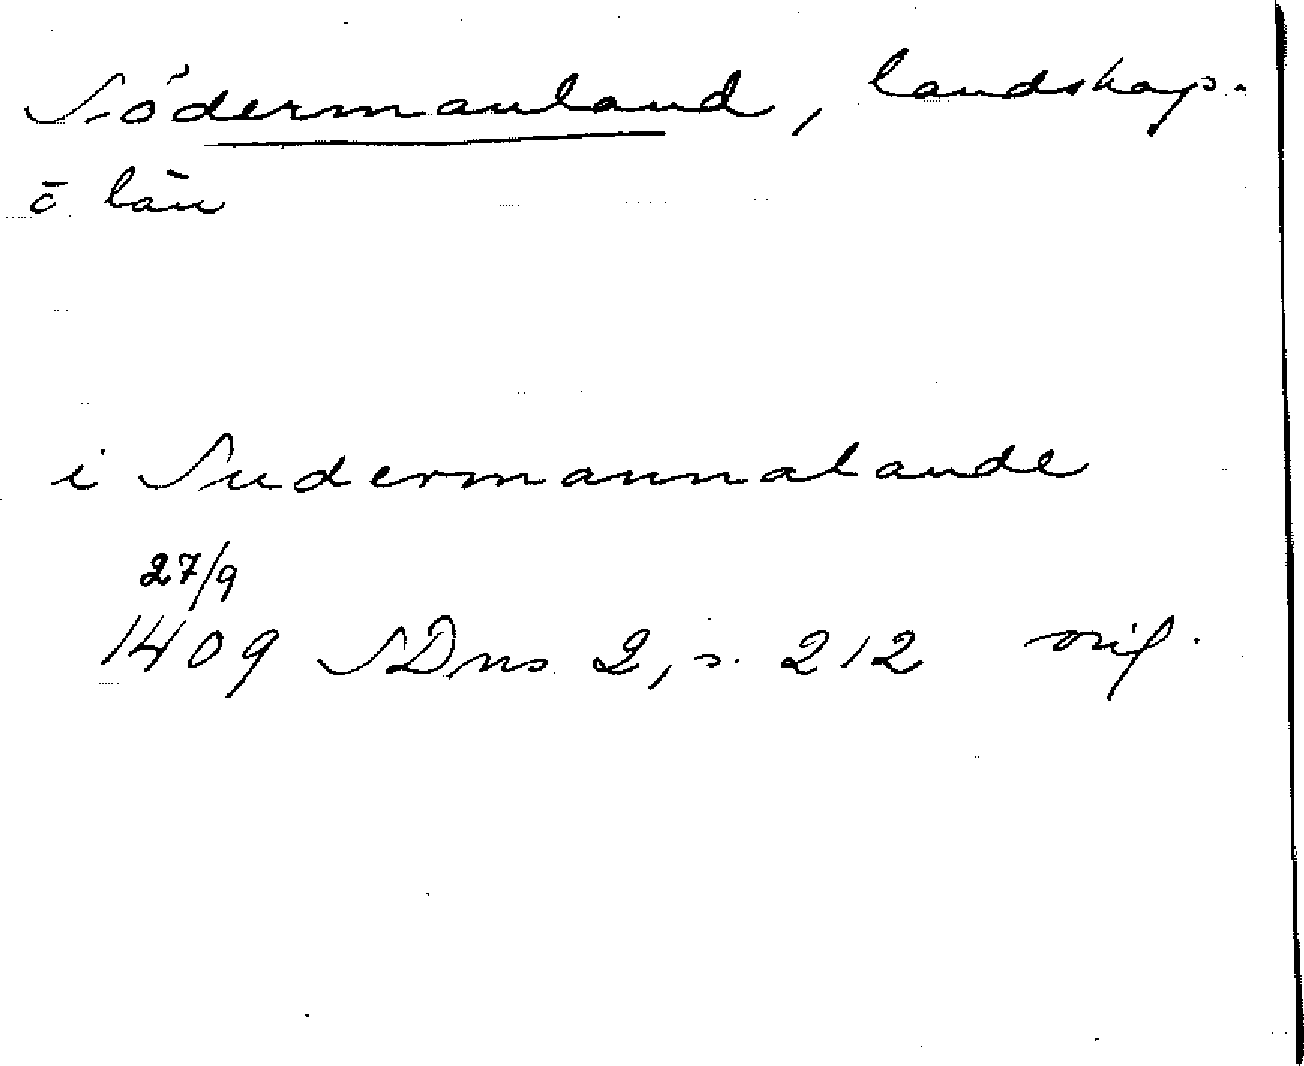 Södermanland, landskap.
o län
i Sudermannalande
27/9
1409 SDns 2, s. 212 orig.